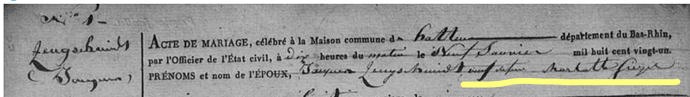 N.° 1
Jacques
ACTE DE MARIAGE, célébré à la Maison commune de hatten département du Bas-Rhin,
par l'Officier de l'État civil, à dix heures du matin le Neuf Janvier mil huit cent vingt-un.
PRÉNOMS et nom de l'ÉPOUX, Jacques veuf de feu